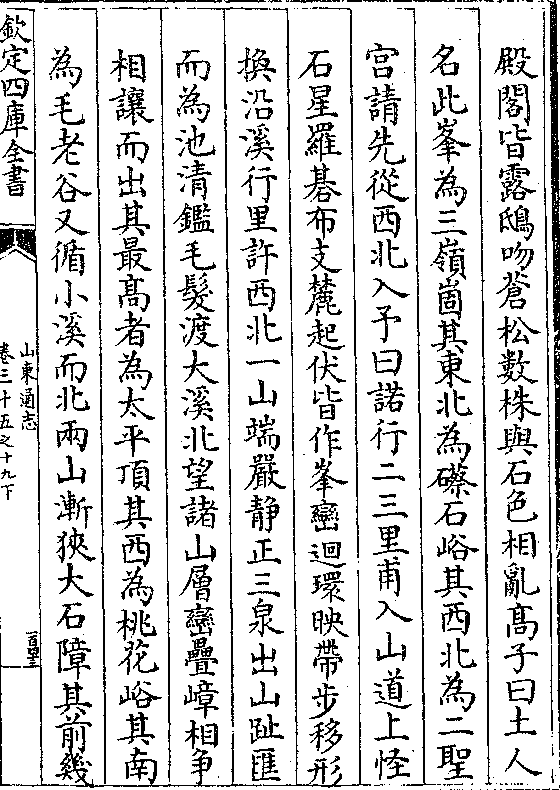 殿閣皆露鴟吻蒼松數株與石色相亂髙子曰土人
名此峯為三嶺崮其東北為礤石峪其西北為二聖
宫請先從西北入予曰諾行二三里甫入山道上怪
石星羅碁布支麓起伏皆作峯巒迴環映帶步移形
換沿溪行里許西北一山端嚴静正三泉出山趾匯
而為池清鑑毛髮渡大溪北望諸山層巒疊嶂相争
相讓而出其最髙者為太平頂其西為桃花峪其南
為毛老谷又循小溪而北兩山漸狹大石障其前幾
欽定四庫全書
山東通志
卷三十五之十九下